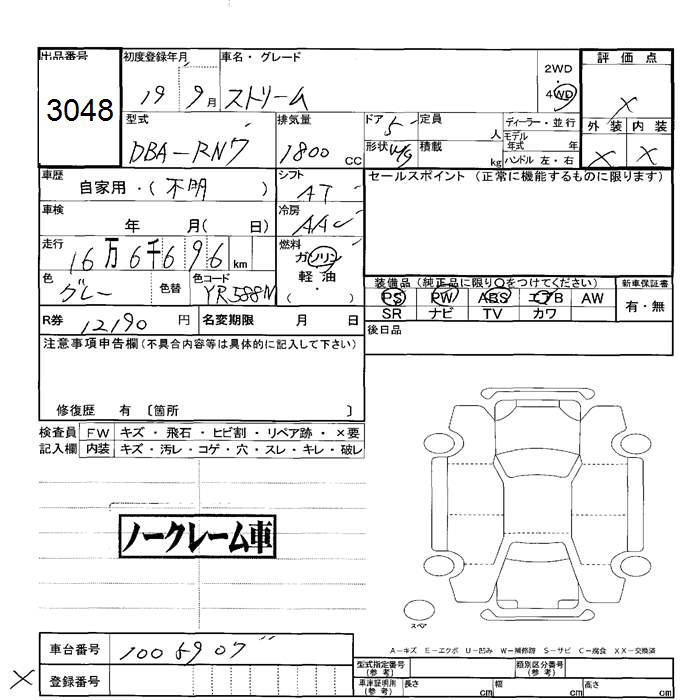 出品番号 初度登録年月 車名・グレード 2WD 評価点
3048 19 9月 ストリーム 4WD X
型式 排気量 ドア 5 定員 人 ディーラー・並行 外装 内装
DBA-RN7 1800 CC 形状 W/g 積載 kg モデル年式 年 X X
ハンドル 左・右
車歴 自家用・(不明) シフト AT セールスポイント (正常に機能するものに限ります)
車検 年 月( 日) 冷房 AAC
走行 16万6千696km 燃料 ガソリン
軽油
・
( )
色 グレー 色替 色コード YR588M 装備品 (純正品に限り○をつけてください) 新車保証書
PS PW ABS エアB AW 有・無
SR ナビ TV カワ
R券 12190 円 名変期限 月 日 後日品
注意事項申告欄(不具合内容等は具体的に記入して下さい)
修復歴 有 〔箇所 〕
検査員 FW キズ・飛石・ヒビ割・リペア跡・×要
記入欄 内装 キズ・汚レ・コゲ・穴・スレ・キレ・破レ
ノークレーム車
スペア
A-キズ E-エクボ U-凹み W-補修跡 S-サビ C-腐食 XX-交換済
車台番号 1005907 型式指定番号(参考) 類別区分番号(参考)
X 登録番号 車庫証明用(参考) 長さ cm 幅 cm 高さ cm